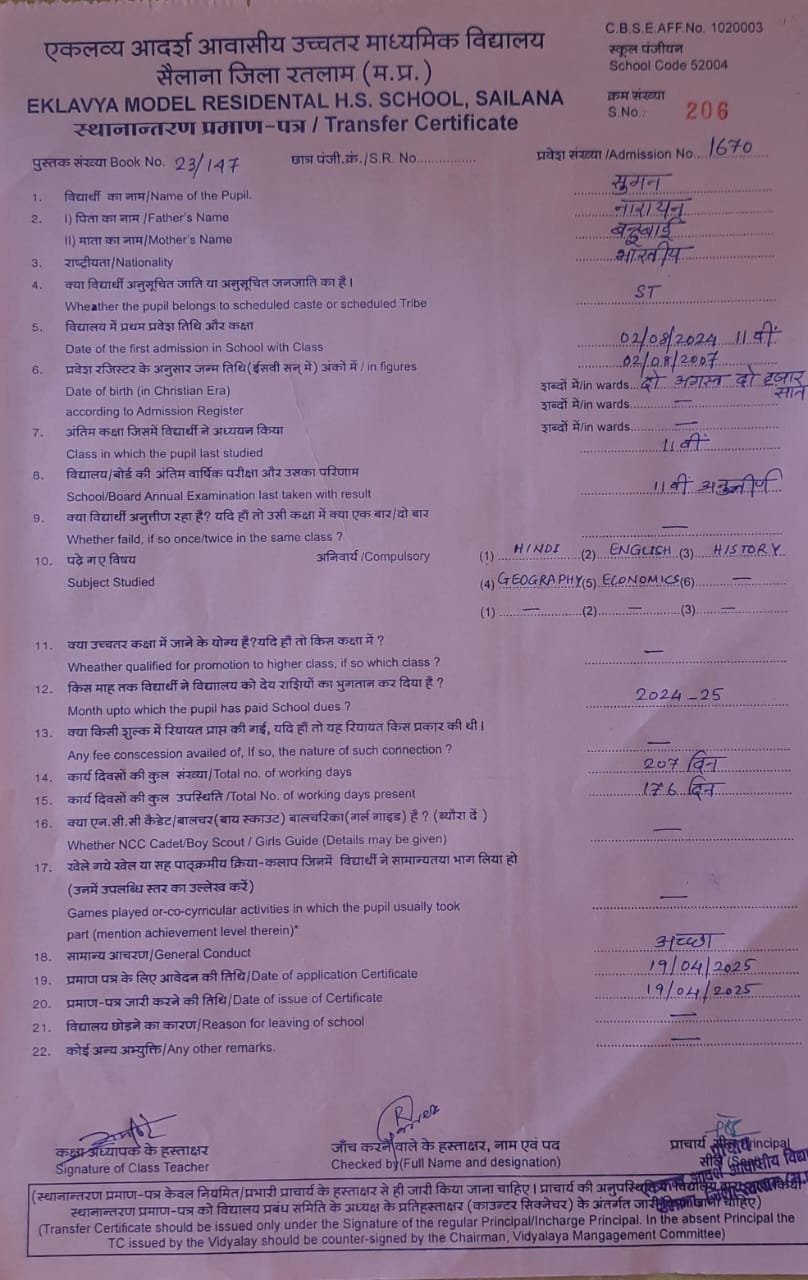 एकलव्य आदर्श आवासीय उच्चतर माध्यमिक विद्यालय
सैलाना जिला रतलाम (म.प्र.)
EKLAVYA MODEL RESIDENTAL H.S. SCHOOL, SAILANA
स्थानान्तरण प्रमाण-पत्र / Transfer Certificate
C.B.S.E.AFF.No. 1020003
स्कूल पंजीयन
School Code 52004
क्रम संख्या
S.No.: 206
पुस्तक संख्या Book No. 23/147 छात्र पंजी.क्रं./S.R. No............... प्रवेश संख्या /Admission No....1670
1. विद्यार्थी का नाम/Name of the Pupil. सुमन
2. I) पिता का नाम /Father's Name नारायन
II) माता का नाम/Mother's Name बद्दुबाई
3. राष्ट्रीयता/Nationality भारतीय
4. क्या विद्यार्थी अनुसूचित जाति या अनुसूचित जनजाति का है।
Wheather the pupil belongs to scheduled caste or scheduled Tribe ST
5. विद्यालय में प्रथम प्रवेश तिथि और कक्षा
Date of the first admission in School with Class 02/08/2024 11वीं
6. प्रवेश रजिस्टर के अनुसार जन्म तिथि(ईसवी सन् में) अंकों में / in figures 02/08/2007
Date of birth (in Christian Era) शब्दों में/in wards...दो अगस्त दो हजार सात
according to Admission Register शब्दों में/in wards... —
7. अंतिम कक्षा जिसमें विद्यार्थी ने अध्ययन किया शब्दों में/in wards... —
Class in which the pupil last studied 11वीं
8. विद्यालय/बोर्ड की अंतिम वार्षिक परीक्षा और उसका परिणाम
School/Board Annual Examination last taken with result 11वीं अनुत्तीर्ण
9. क्या विद्यार्थी अनुत्तीण रहा है? यदि हाँ तो उसी कक्षा में क्या एक बार/दो बार
Whether faild, if so once/twice in the same class ? —
10. पढ़े गए विषय अनिवार्य /Compulsory (1) HINDI (2) ENGLISH (3) HISTORY
Subject Studied (4) GEOGRAPHY (5) ECONOMICS (6) —
(1) — (2) — (3) —
11. क्या उच्चतर कक्षा में जाने के योग्य है?यदि हाँ तो किस कक्षा में ?
Wheather qualified for promotion to higher class, if so which class ? —
12. किस माह तक विद्यार्थी ने विद्याालय को देय राशियों का भुगतान कर दिया है ?
Month upto which the pupil has paid School dues ? 2024-25
13. क्या किसी शुल्क में रियायत प्राप्त की गई, यदि हाँ तो यह रियायत किस प्रकार की थी।
Any fee conscession availed of, If so, the nature of such connection ? —
14. कार्य दिवसों की कुल संख्या/Total no. of working days 207 दिन
15. कार्य दिवसों की कुल उपस्थिति /Total No. of working days present 176 दिन
16. क्या एन.सी.सी कैडेट/बालचर(बाय स्काउट) बालचरिका(गर्ल गाइड) है ? (ब्यौरा दें )
Whether NCC Cadet/Boy Scout / Girls Guide (Details may be given) —
17. खेले गये खेल या सह पाठ्क्रमीय क्रिया-कलाप जिनमें विद्यार्थी ने सामान्यतया भाग लिया हो
(उनमें उपलब्धि स्तर का उल्लेख करें)
Games played or-co-cyrricular activities in which the pupil usually took —
part (mention achievement level therein)*
18. सामान्य आचरण/General Conduct अच्छा
19. प्रमाण पत्र के लिए आवेदन की तिथि/Date of application Certificate 19/04/2025
20. प्रमाण-पत्र जारी करने की तिथि/Date of issue of Certificate 19/04/2025
21. विद्यालय छोड़ने का कारण/Reason for leaving of school —
22. कोई अन्य अभ्युक्ति/Any other remarks. —
कक्षा अध्यापक के हस्ताक्षर
Signature of Class Teacher
जाँच करने वाले के हस्ताक्षर, नाम एवं पद
Checked by (Full Name and designation)
प्राचार्य Principal
सील
(स्थानान्तरण प्रमाण-पत्र केवल नियमित/प्रभारी प्राचार्य के हस्ताक्षर से ही जारी किया जाना चाहिए। प्राचार्य की अनुपस्थिति
स्थानान्तरण प्रमाण-पत्र को विद्यालय प्रबंध समिति के अध्यक्ष के प्रतिहस्ताक्षर (काउन्टर सिक्नेचर) के अंतर्गत जारी चाहिए)
(Transfer Certificate should be issued only under the Signature of the regular Principal/Incharge Principal. In the absent Principal the
TC issued by the Vidyalay should be counter-signed by the Chairman, Vidyalaya Mangagement Committee)